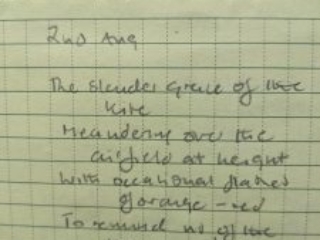 2nd Aug
The slender grace of the
kite
Meandering over the
airfield at height
With occasional flashes
of orange - red
To remind us of the